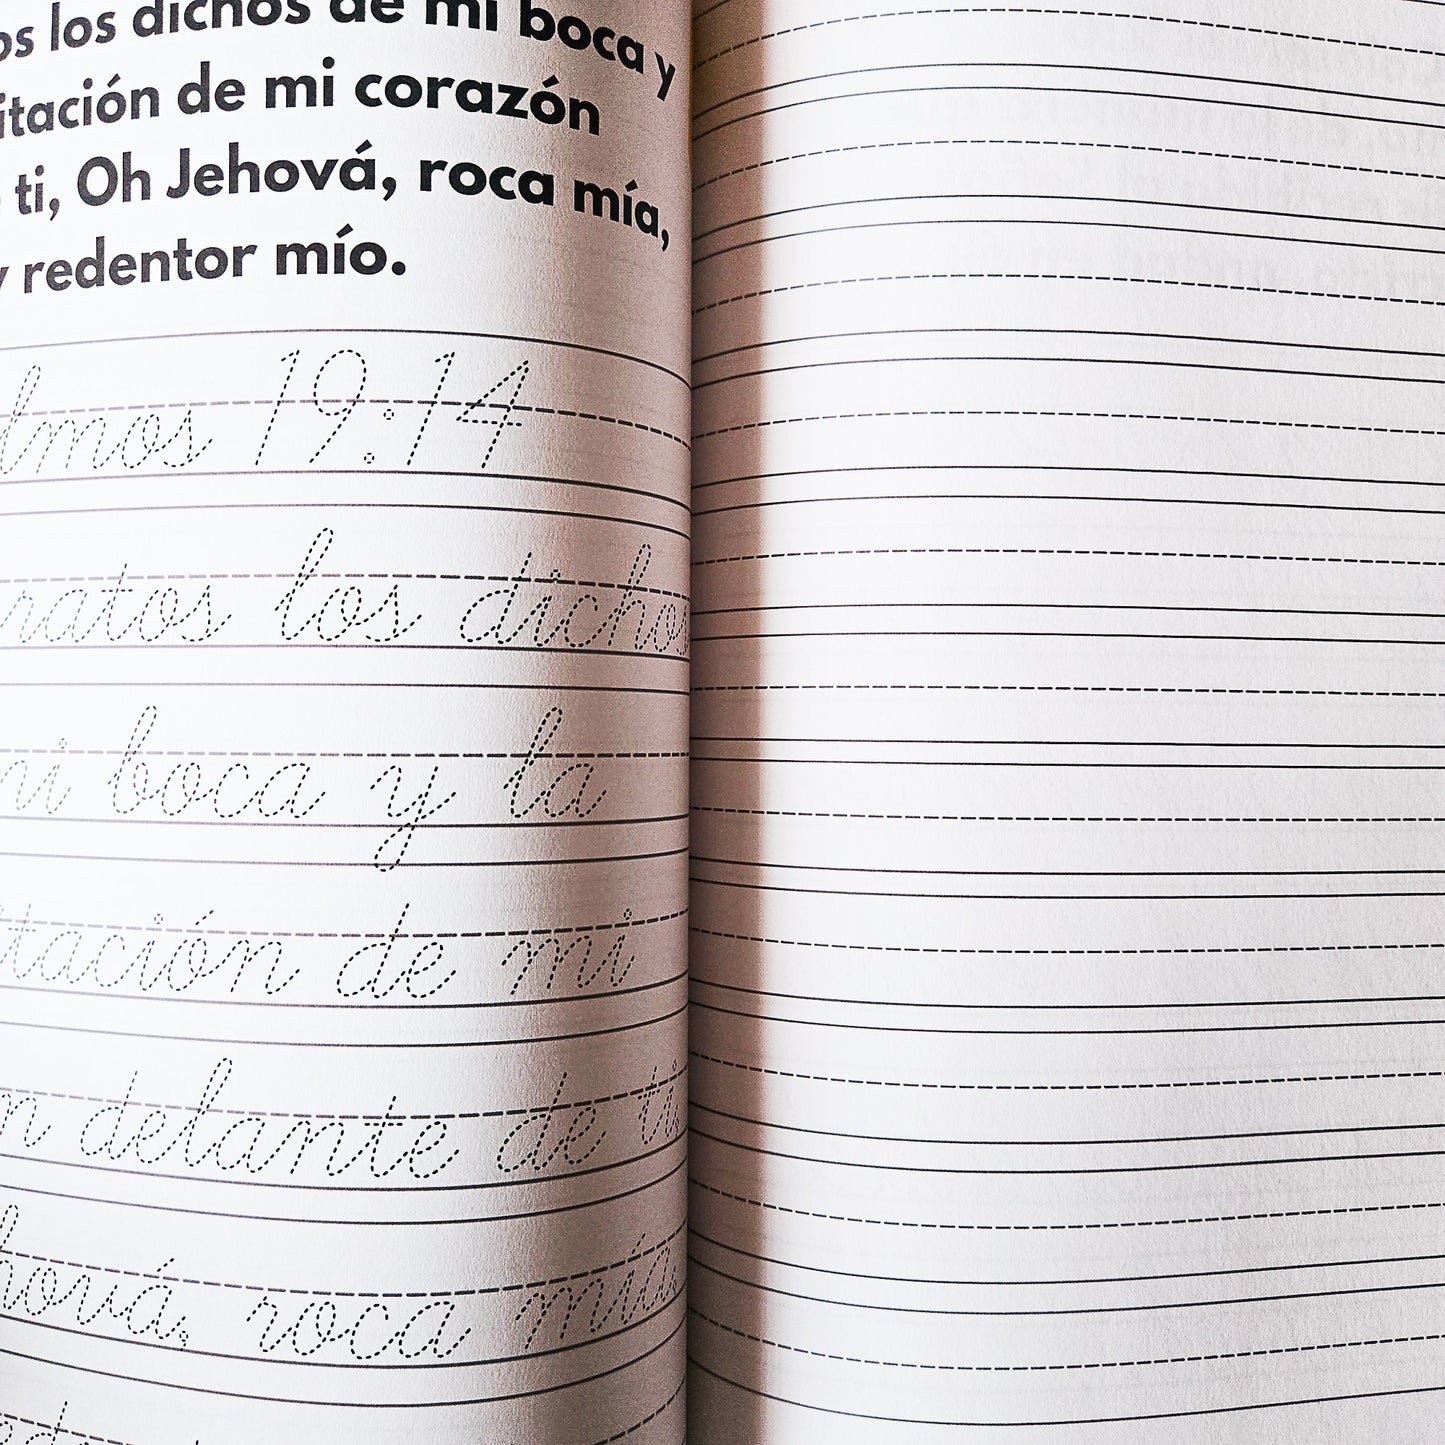 los dichos de mi boca y
itación de mi corazón
ti, Oh Jehová, roca mía,
y redentor mío.
lmos 19:14
ratos los dichos
mi boca y la
itación de mi
n delante de ti,
hová, roca mía,